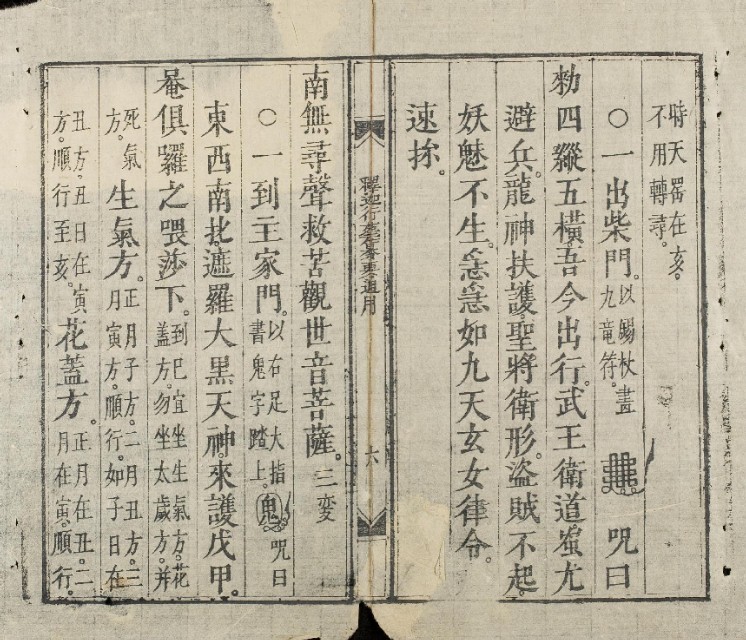 時天罡在亥。
不用轉尋。
○一出柴門。以錫杖畫九竜符。咒曰
勑四縱五橫。吾今出行。武王衛道。蚩尤
避兵。龍神扶護。聖將衛形。盜賊不起。
妖魅不生。急急如九天玄女律令。
速
釋迦行要通用
六
南無尋聲救苦觀世音菩薩。三変
○一到主家門。以右足大指書鬼字踏上。鬼 咒曰
東西南北。遮羅大黒天神。來護戊甲。
菴俱羅之喂莎下。到巳宜坐生氣方。花蓋方。勿坐太歲方。并
死氣方。生氣方。正月子方。二月丑方。三月寅方。順行。如子日在
丑方。丑日在寅方。順行至亥。花蓋方。正月在丑。二月在寅。順行。